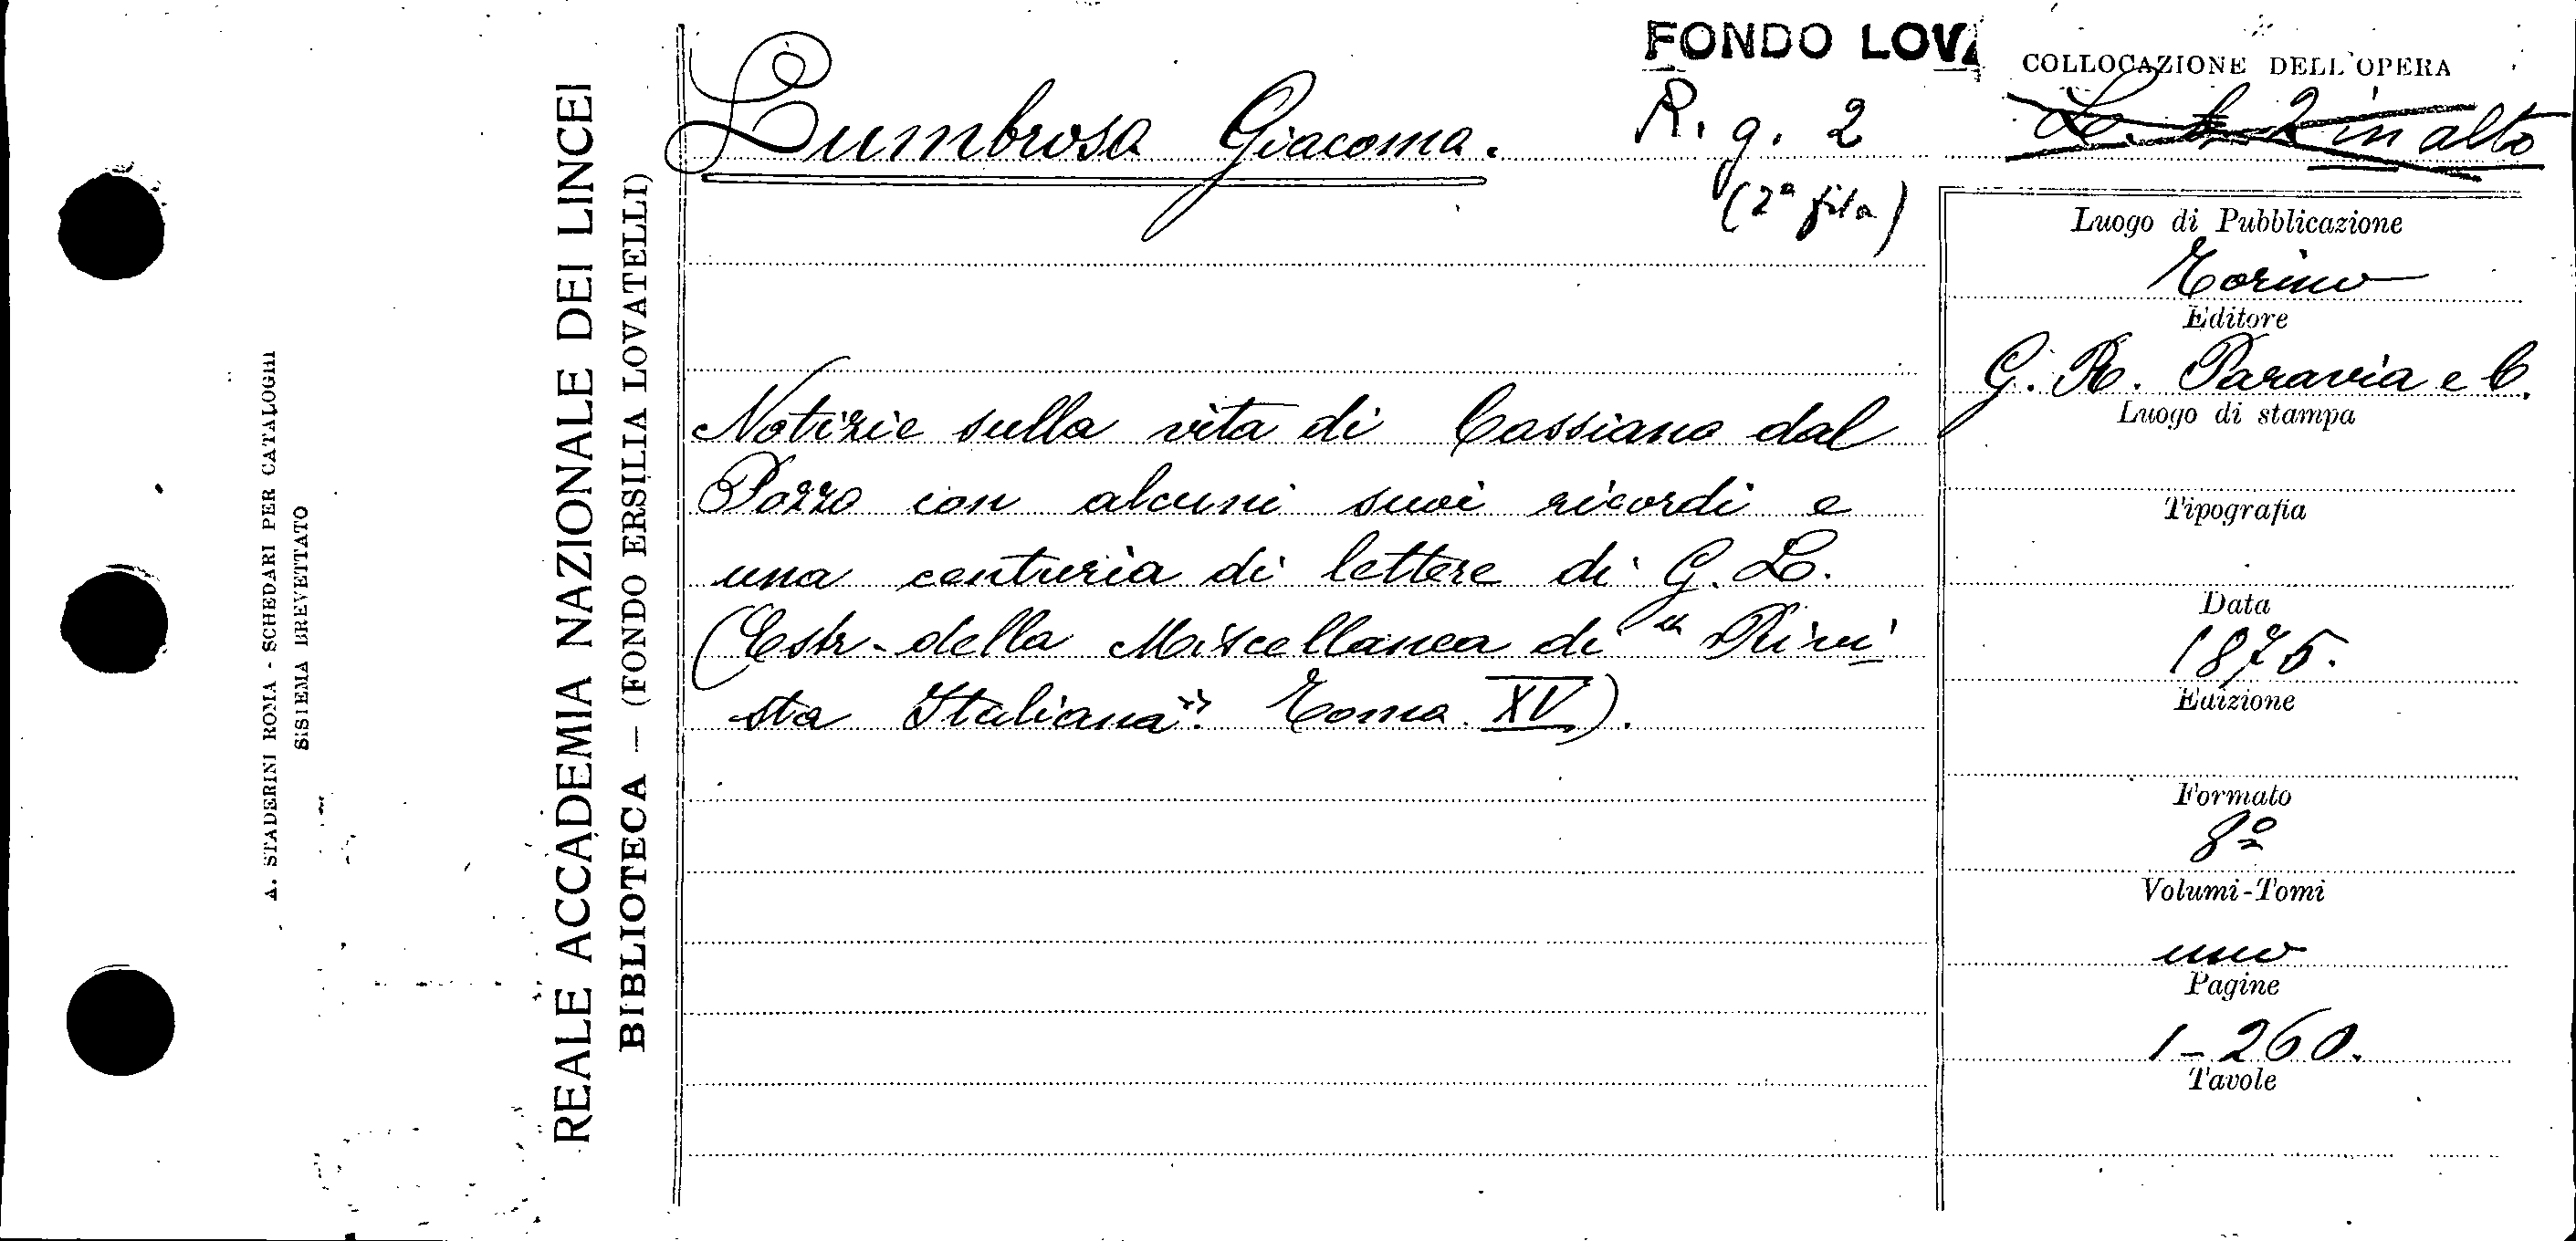 A. STADERINI ROMA - SCHEDARI PER CATALOGHI
SISTEMA BREVETTATO
REALE ACCADEMIA NAZIONALE DEI LINCEI
BIBLIOTECA — (FONDO ERSILIA LOVATELLI)
FONDO LOVA
Lumbroso Giacomo.
R. g. 2
(2ª fila)
Notizie sulla vita di Cassiano dal
Pozzo con alcuni suoi ricordi e
una centuria di lettere di G. L.
(Estr. della Miscellanea di "Rivi
sta Italiana". Tomo XV).
COLLOCAZIONE DELL'OPERA
in alto
Luogo di Pubblicazione
Torino
Editore
G. B. Paravia e C.
Luogo di stampa
Tipografia
Data
1875.
Edizione
Formato
8º
Volumi-Tomi
uno
Pagine
1-260.
Tavole